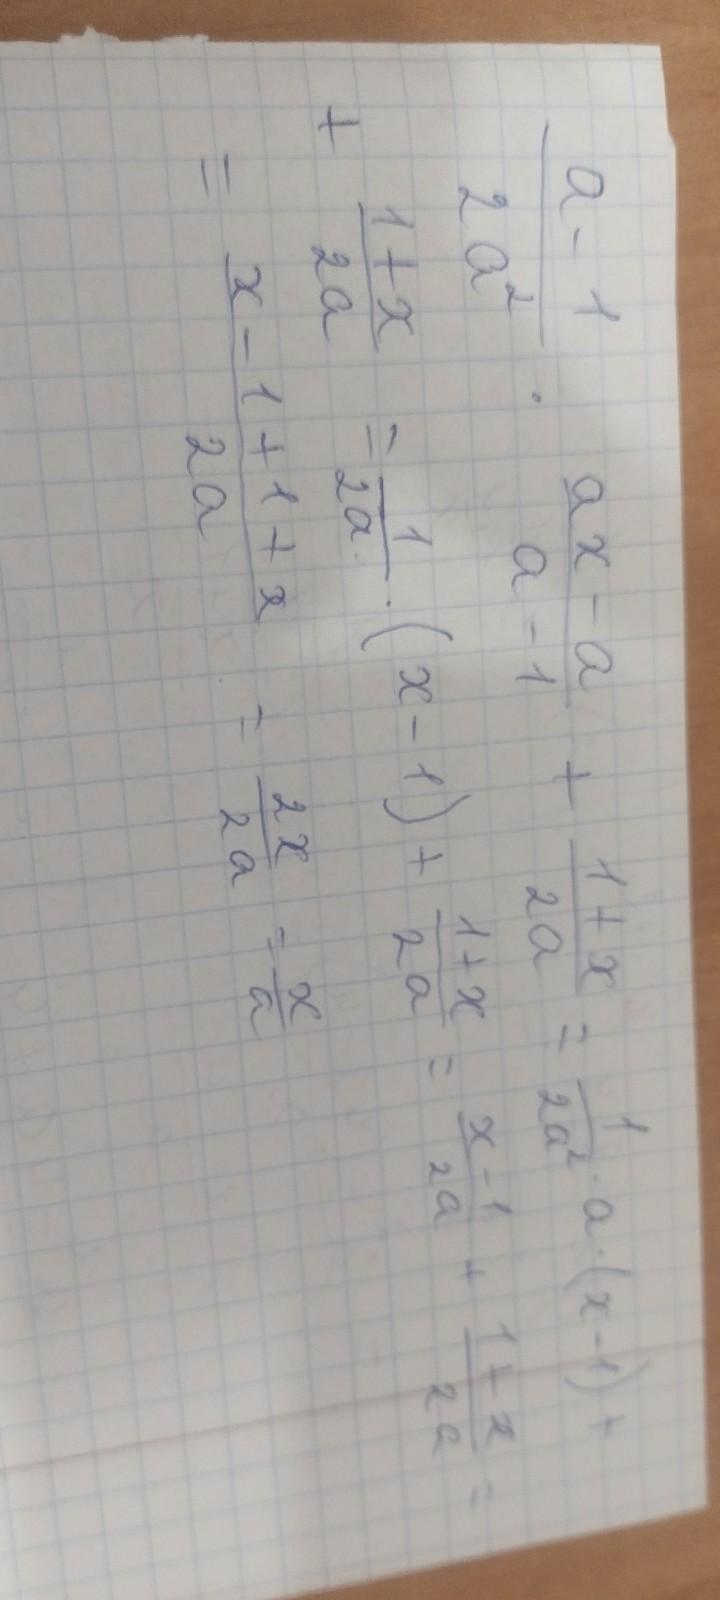 (a - 1)/(2a²) · (ax - a)/(a - 1) + (1 + x)/(2a) = 1/(2a²) · a · (x - 1) +
+ (1 + x)/(2a) = 1/(2a) · (x - 1) + (1 + x)/(2a) = (x - 1)/(2a) + (1 + x)/(2a) =
= (x - 1 + 1 + x)/(2a) = (2x)/(2a) = x/a